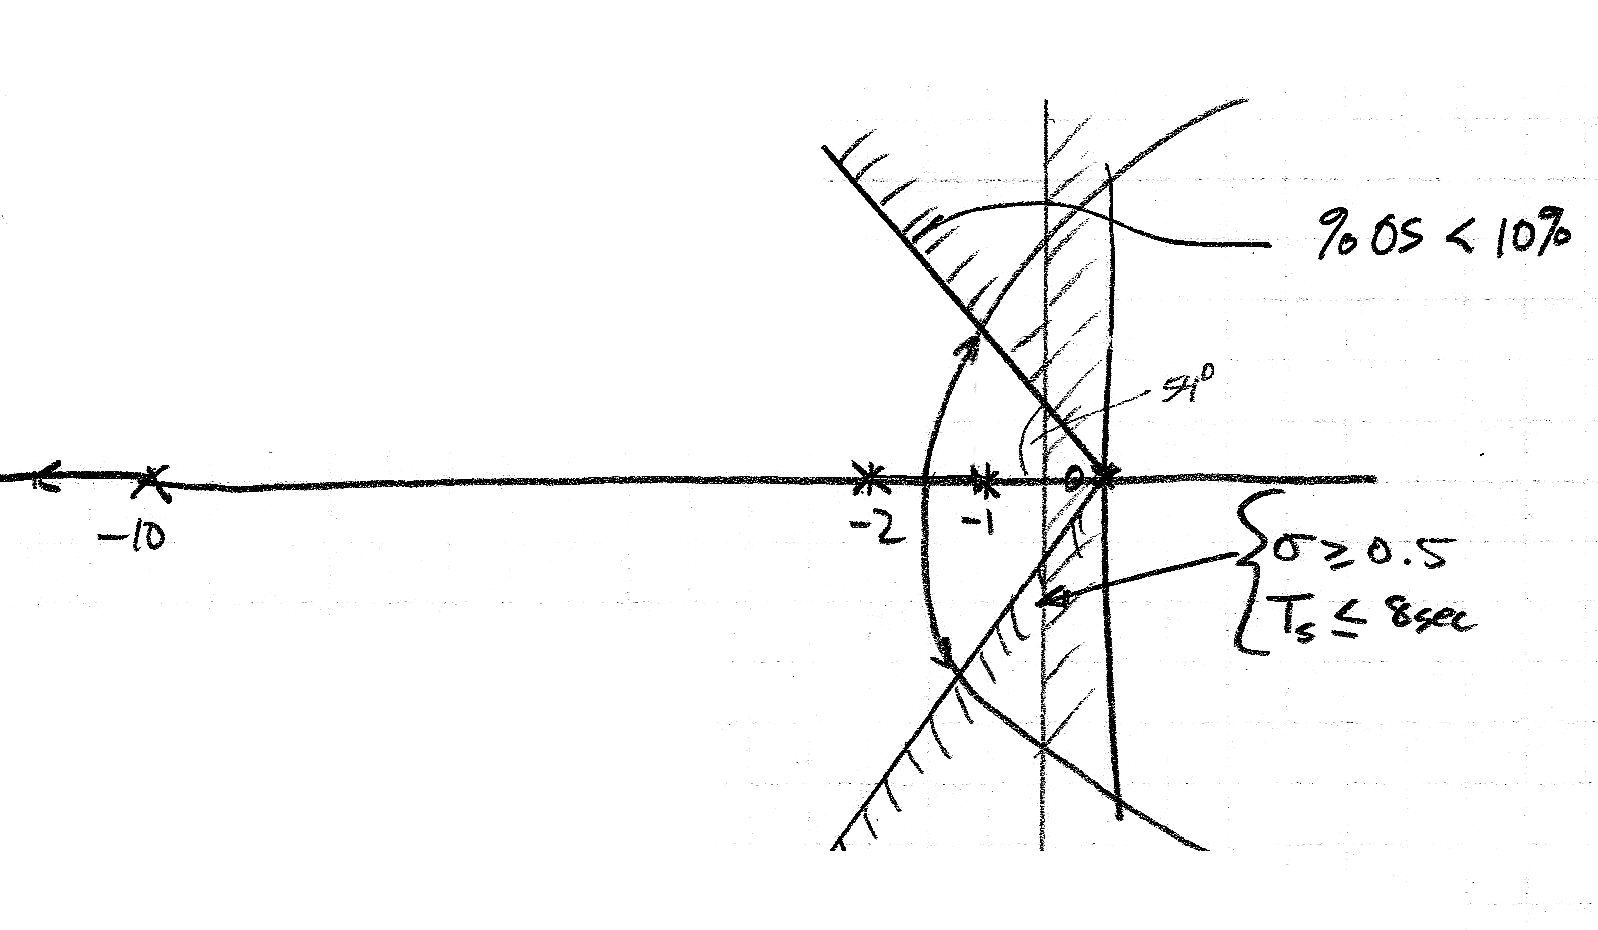 % OS < 10%
54°
-10
-2
-1
σ ≥ 0.5
Ts ≤ 8sec